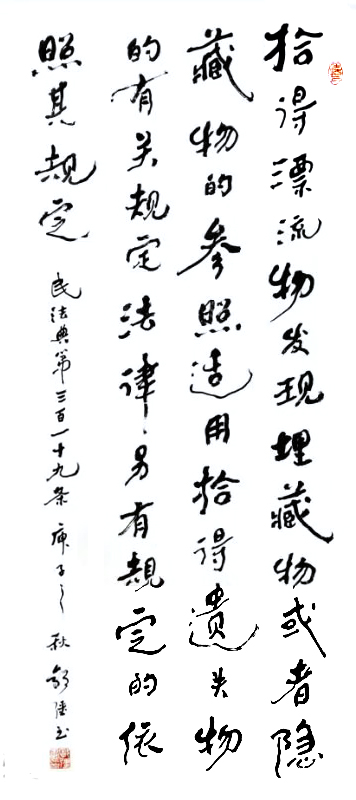 拾得漂流物发现埋藏物或者隐
藏物的参照适用拾得遗失物
的有关规定法律另有规定的依
照其规定
民法典第三百一十九条庚子之秋